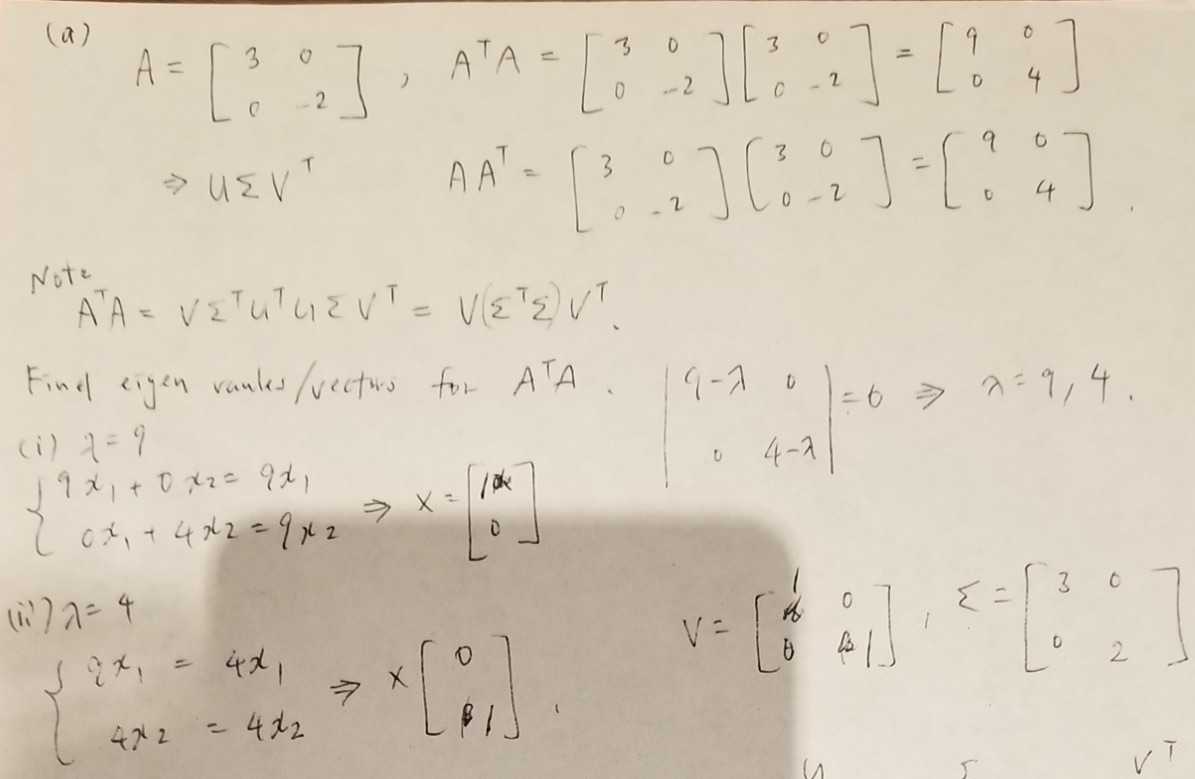 (a)
A = [3 0; 0 -2], AᵀA = [3 0; 0 -2][3 0; 0 -2] = [9 0; 0 4]
⇒ UΣVᵀ AAᵀ = [3 0; 0 -2][3 0; 0 -2] = [9 0; 0 4].
Note
AᵀA = VΣᵀUᵀUΣVᵀ = V(ΣᵀΣ)Vᵀ.
Find eigen vaules/vectors for AᵀA. |9-λ 0; 0 4-λ| = 0 ⇒ λ = 9, 4.
(i) λ = 9
{9x₁ + 0x₂ = 9x₁
0x₁ + 4x₂ = 9x₂ ⇒ x = [1; 0]
(ii) λ = 4
{9x₁ = 4x₁
4x₂ = 4x₂ ⇒ x [0; 1].
V = [1 0; 0 1], Σ = [3 0; 0 2]
U Σ Vᵀ